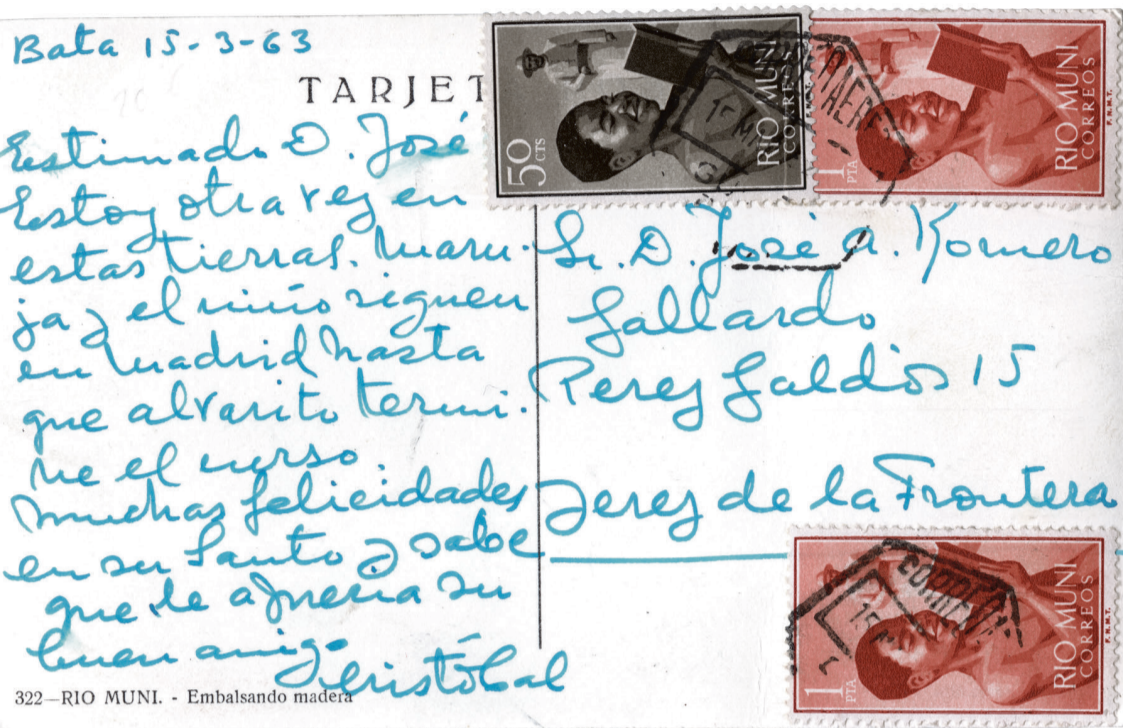 Bata 15-3-63
TARJET
Estimado D. José
Estoy otra vez en
estas tierras. Maru-
ja y el niño siguen
en Madrid hasta
que alvarito termi-
ne el curso.
muchas felicidades
en su Santo y sabe
que le aprecia su
buen amigo
Cristóbal
322—RIO MUNI. - Embalsando madera
50 CTS
RIO MUNI
CORREOS
1 PTA
RIO MUNI
CORREOS
F.N.M.T.
Sr. D. José A. Romero
Gallardo
Perez Galdós 15
Jerez de la Frontera
CORREO
1 PTA
RIO MUNI
CORREOS
F.N.M.T.